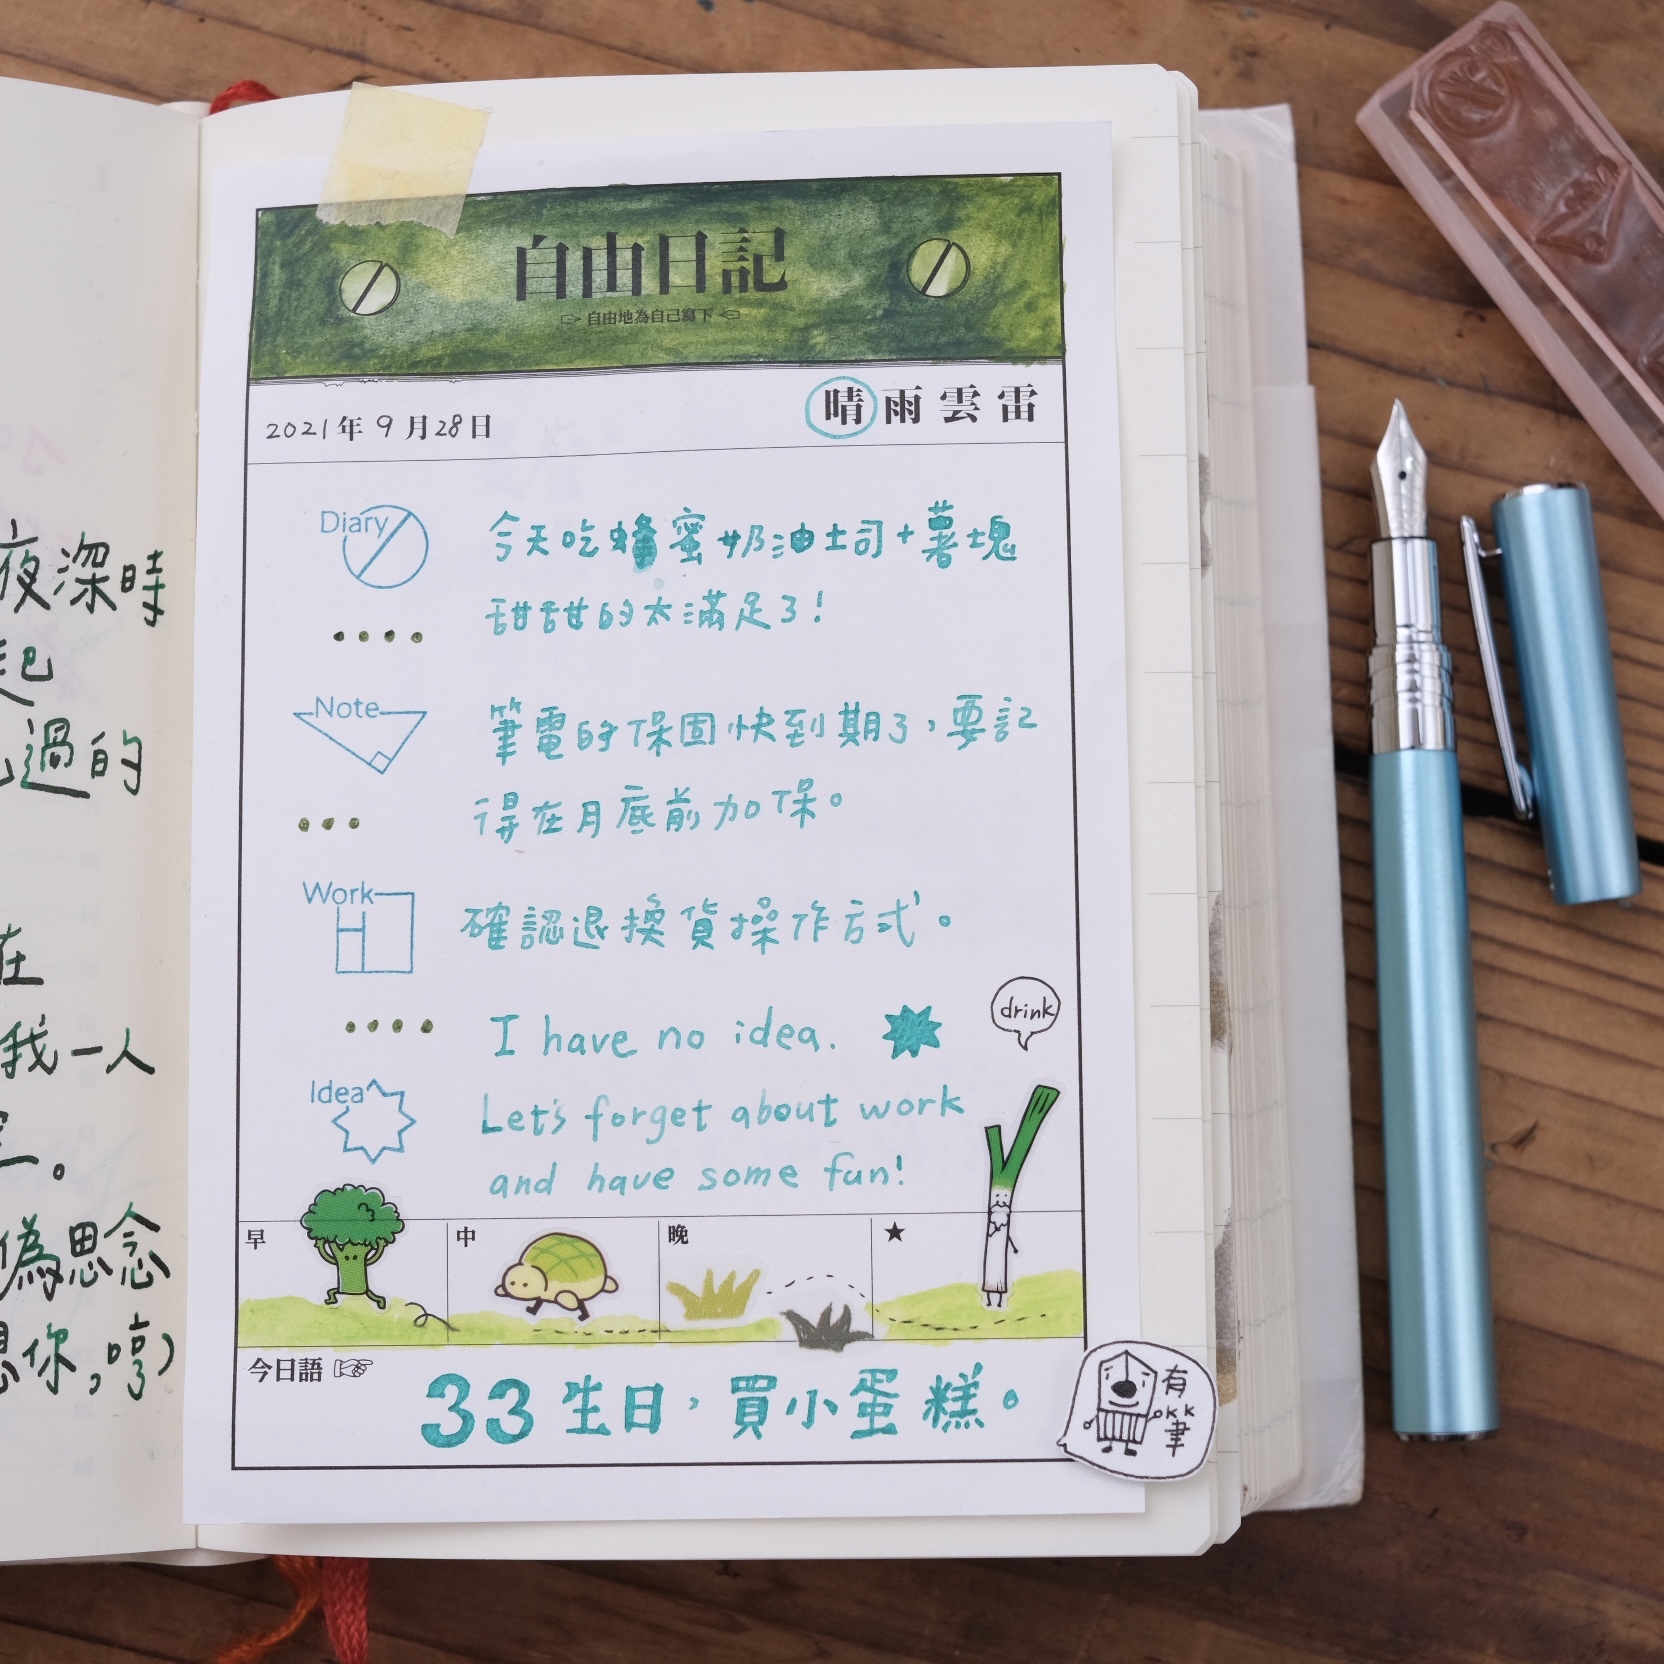 夜深時
起
過的
在
我一人
。
偽思念
想你,哼)
自由日記
自由地為自己寫下
2021年9月28日
晴雨雲雷
Diary
今天吃蜂蜜奶油土司+薯塊
甜甜的太滿足了!
Note
筆電的保固快到期了,要記
得在月底前加保。
Work
確認退換貨操作方式。
I have no idea.
drink
Idea
Let's forget about work
and have some fun!
早
中
晚
★
今日語
33生日,買小蛋糕。
有
KK
聿